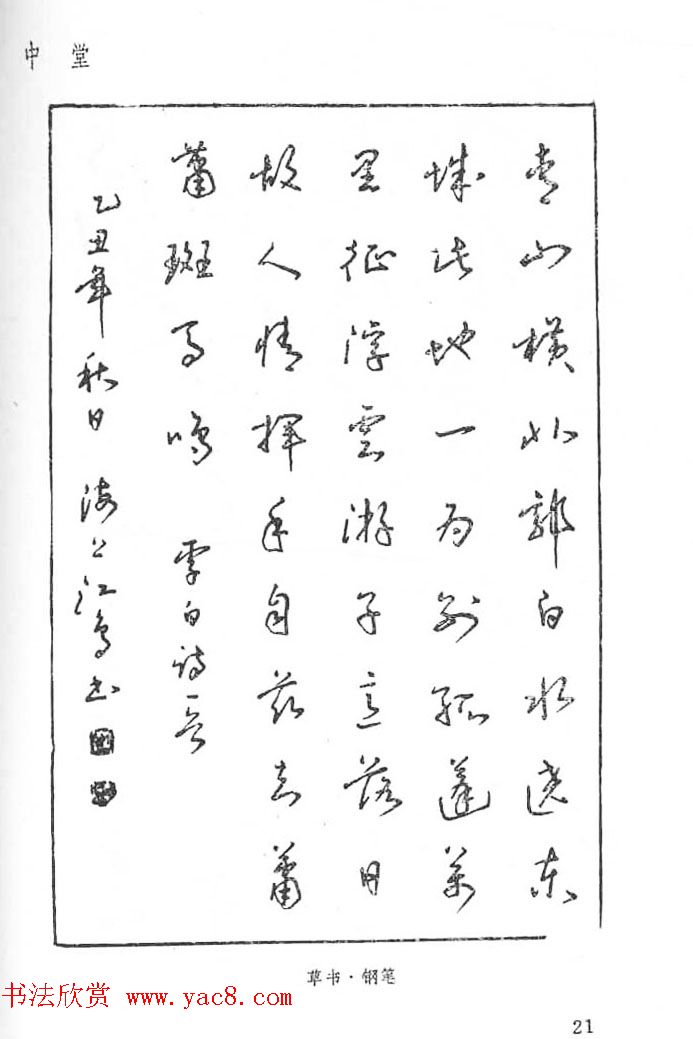 中堂
青山横北郭白水遶东
城此地一为别孤蓬万
里征浮云游子意落日
故人情挥手自兹去萧
萧班马鸣 李白诗一首
乙丑年秋日 海上江鸟书
草书·钢笔
书法欣赏 www.yac8.com
21